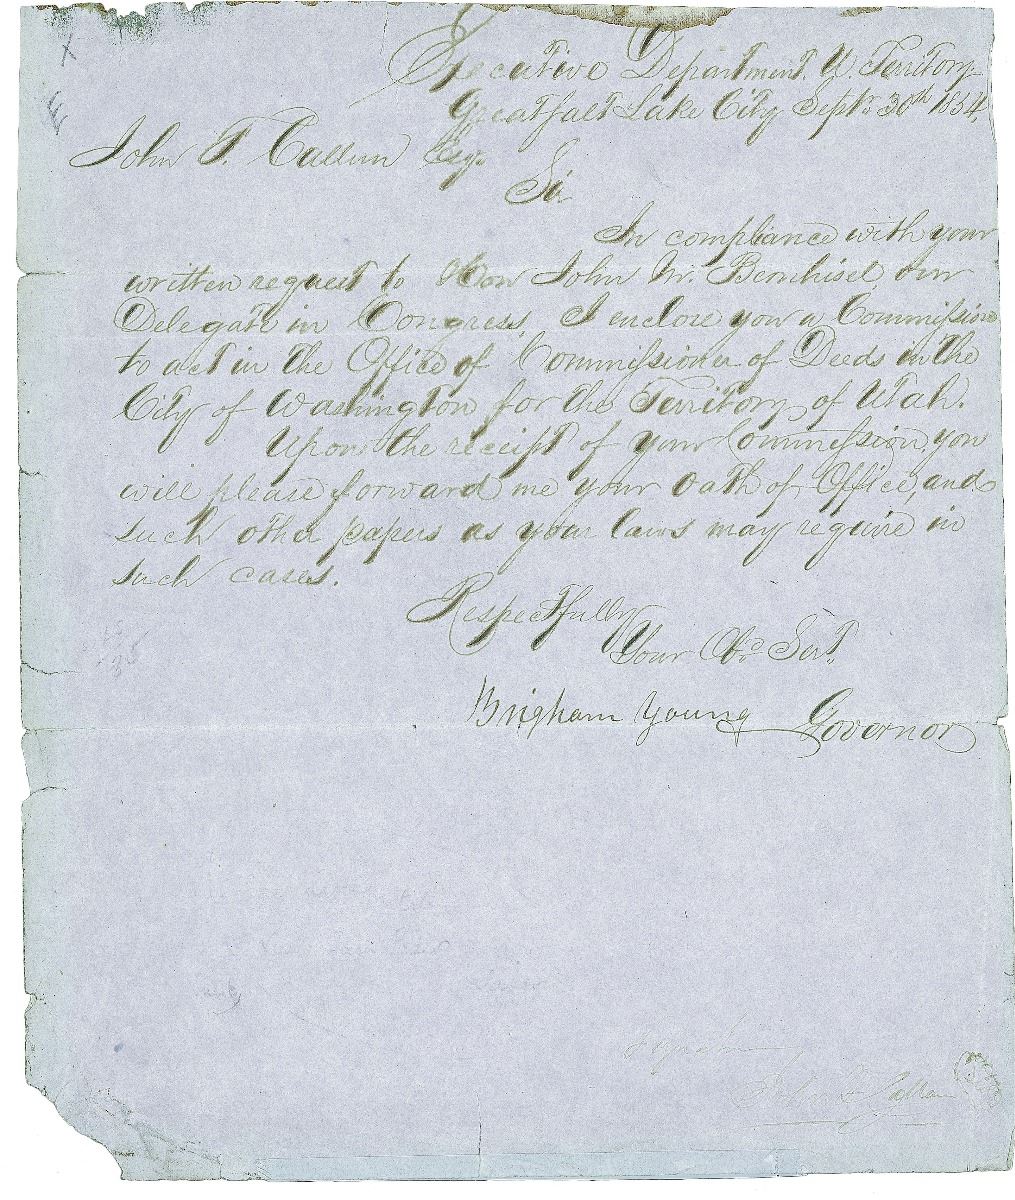 Executive Department, U. Territory
Great Salt Lake City Sept. 30th 1854,
John T. Callum Esq.
Sir
In compliance with your
written request to Hon John M. Bernhisel, our
Delegate in Congress, I enclose you a Commission
to act in the Office of Commissioner of Deeds in the
City of Washington for the Territory of Utah.
Upon the receipt of your Commission, you
will please forward me your Oath of Office, and
such other papers as your laws may require in
such cases.
Respectfully
Your Obd. Servt.
Brigham Young Governor